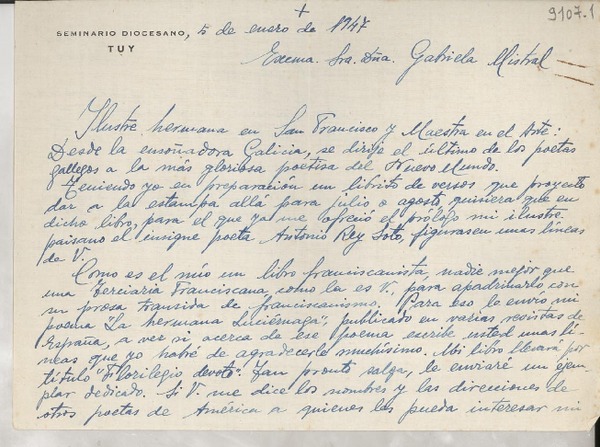 +
9107.1
SEMINARIO DIOCESANO, 5 de enero de 1947
TUY
Excma. Sra. Dña. Gabriela Mistral
Ilustre hermana en San Francisco y Maestra en el Arte:
Desde la ensoñadora Galicia, se dirije el último de los poetas
gallegos a la más gloriosa poetisa del Nuevo Mundo.
Teniendo yo en preparación un librito de versos que proyecto
dar a la estampa allá para julio o agosto, quisiera que en
dicho libro, para el que ya me ofreció el prólogo mi ilustre
paisano el insigne poeta Antonio Rey Soto, figurasen unas líneas
de V.
Como es el mío un libro franciscanista, nadie mejor que
una Terciaria Franciscana como lo es V. para apadrinarlo con
su prosa transida de franciscanismo. Para eso le envío mi
poema "La hermana Luciérnaga", publicado en varias revistas de
España, a ver si acerca de ese poema escribe usted unas lí-
neas que yo habré de agradecerle muchísimo. Mi libro llevará por
título "Florilegio devoto". Tan pronto salga, le enviaré un ejem-
plar dedicado. Si V. me dice los nombres y las direcciones de
otros poetas de América a quienes les pueda interesar mi